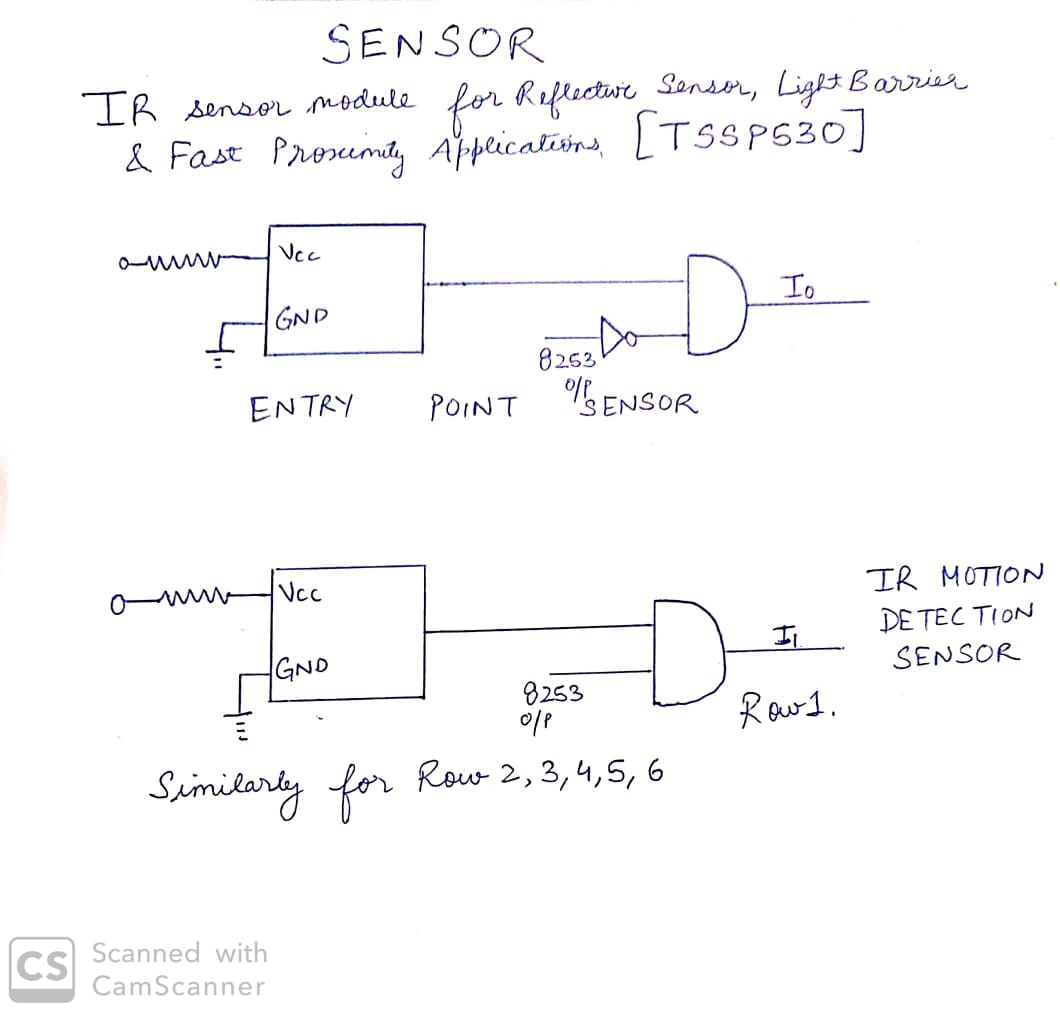 SENSOR
IR sensor module for Reflective Sensor, Light Barrier
& Fast Proximity Applications, [TSSP530]
Vcc
GND
I0
8253
O/P
ENTRY POINT SENSOR
Vcc
GND
8253
O/P
I1
Row1.
IR MOTION
DETECTION
SENSOR
Similarly for Row 2, 3, 4, 5, 6
CS Scanned with
CamScanner